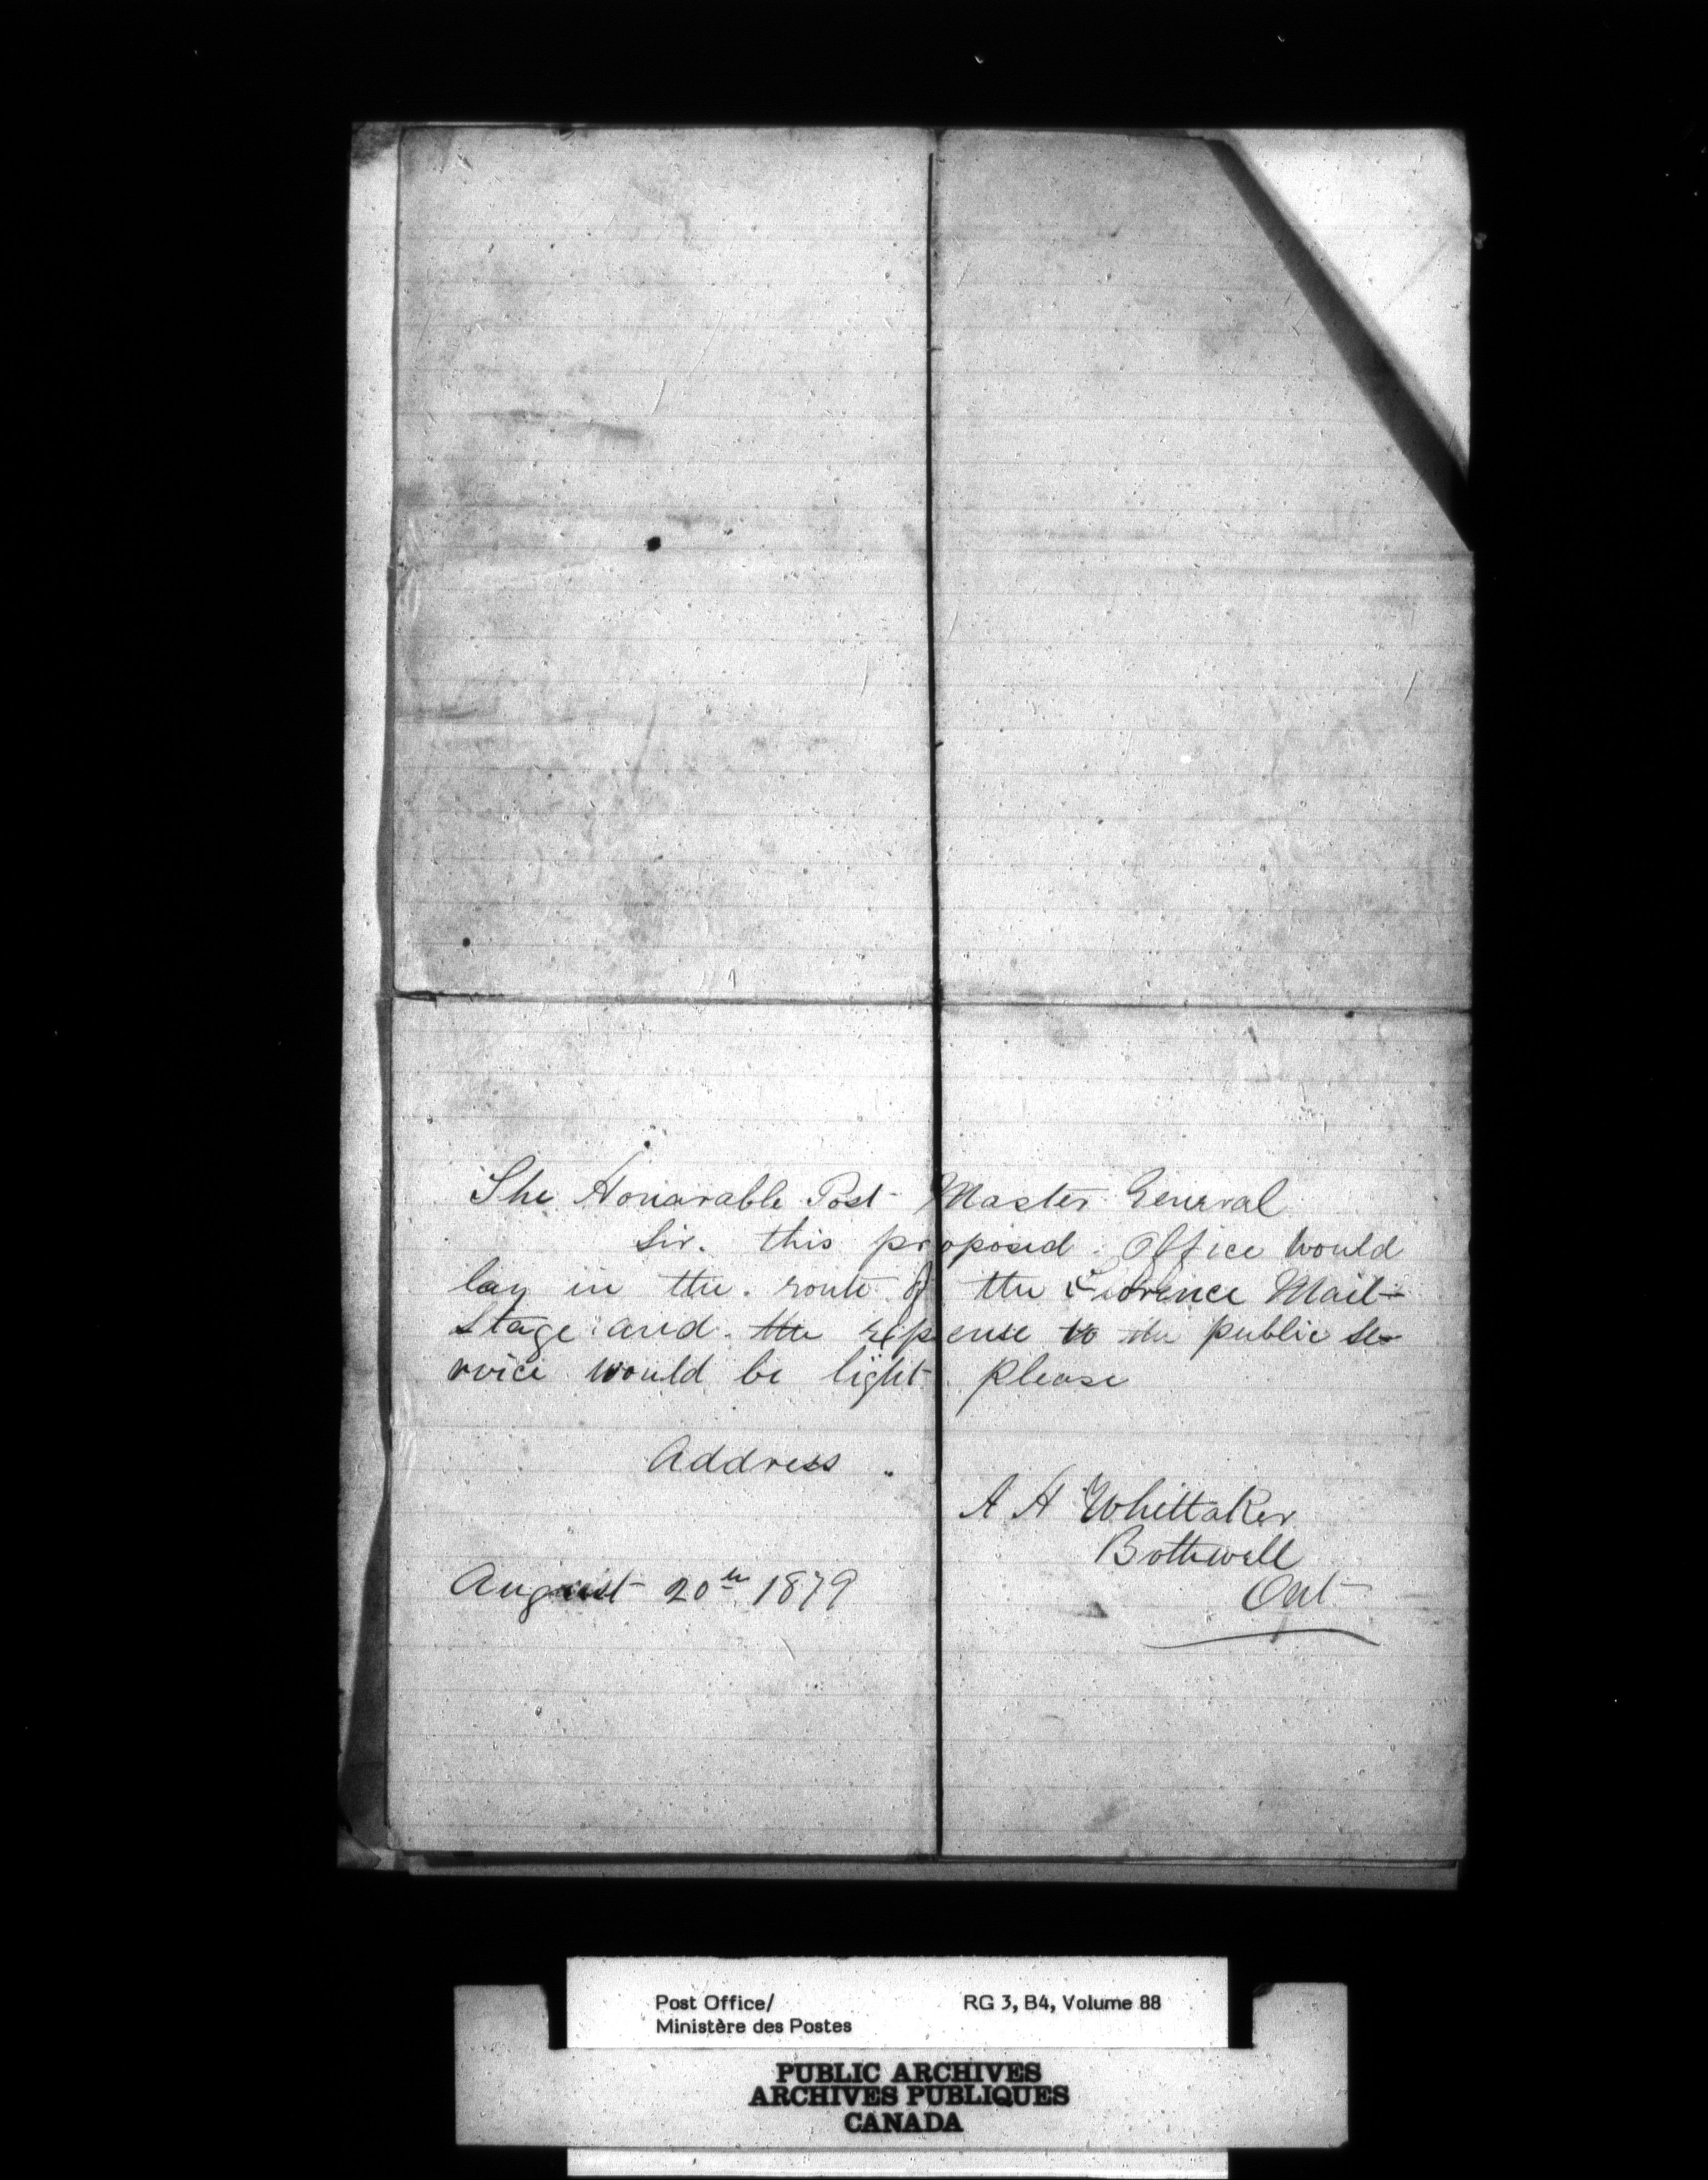 The Honarable Post Master General
Sir. this proposed Office would
lay in the route of the Florence Mail
Stage and the expense to the public se-
rvice would be light please
Address
A H Whittaker
Bothwell
August 20th 1879
Ont
Post Office/
Ministère des Postes
RG 3, B4, Volume 88
PUBLIC ARCHIVES
ARCHIVES PUBLIQUES
CANADA